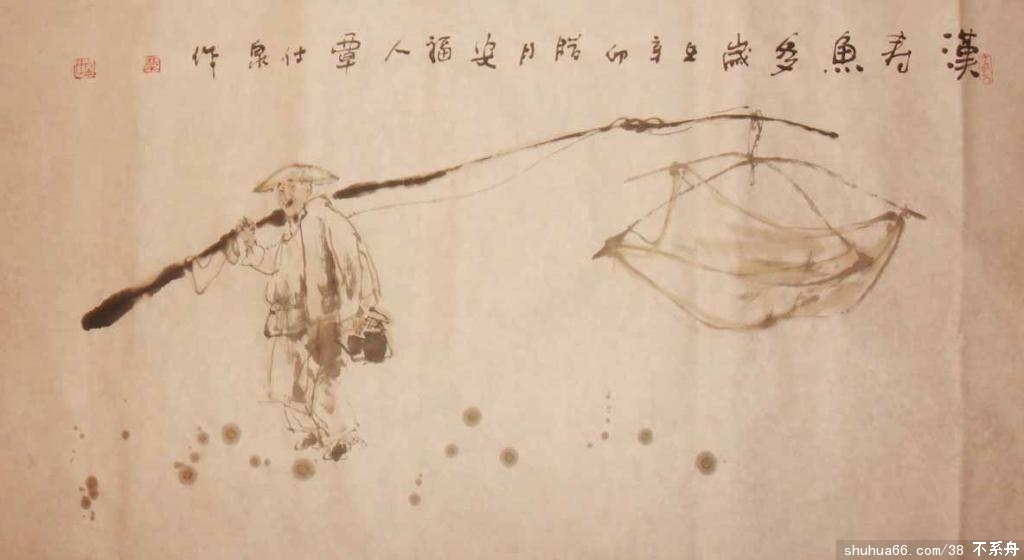 漢寿魚多歲在辛卯腊月安福人覃仕泉作
shuhua66.com/38 不系舟